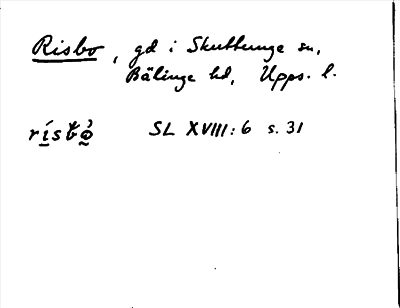 Risbo, gd i Skuttunge sn,
Bälinge hd, Upps. l.
SL XVIII:6 s. 31